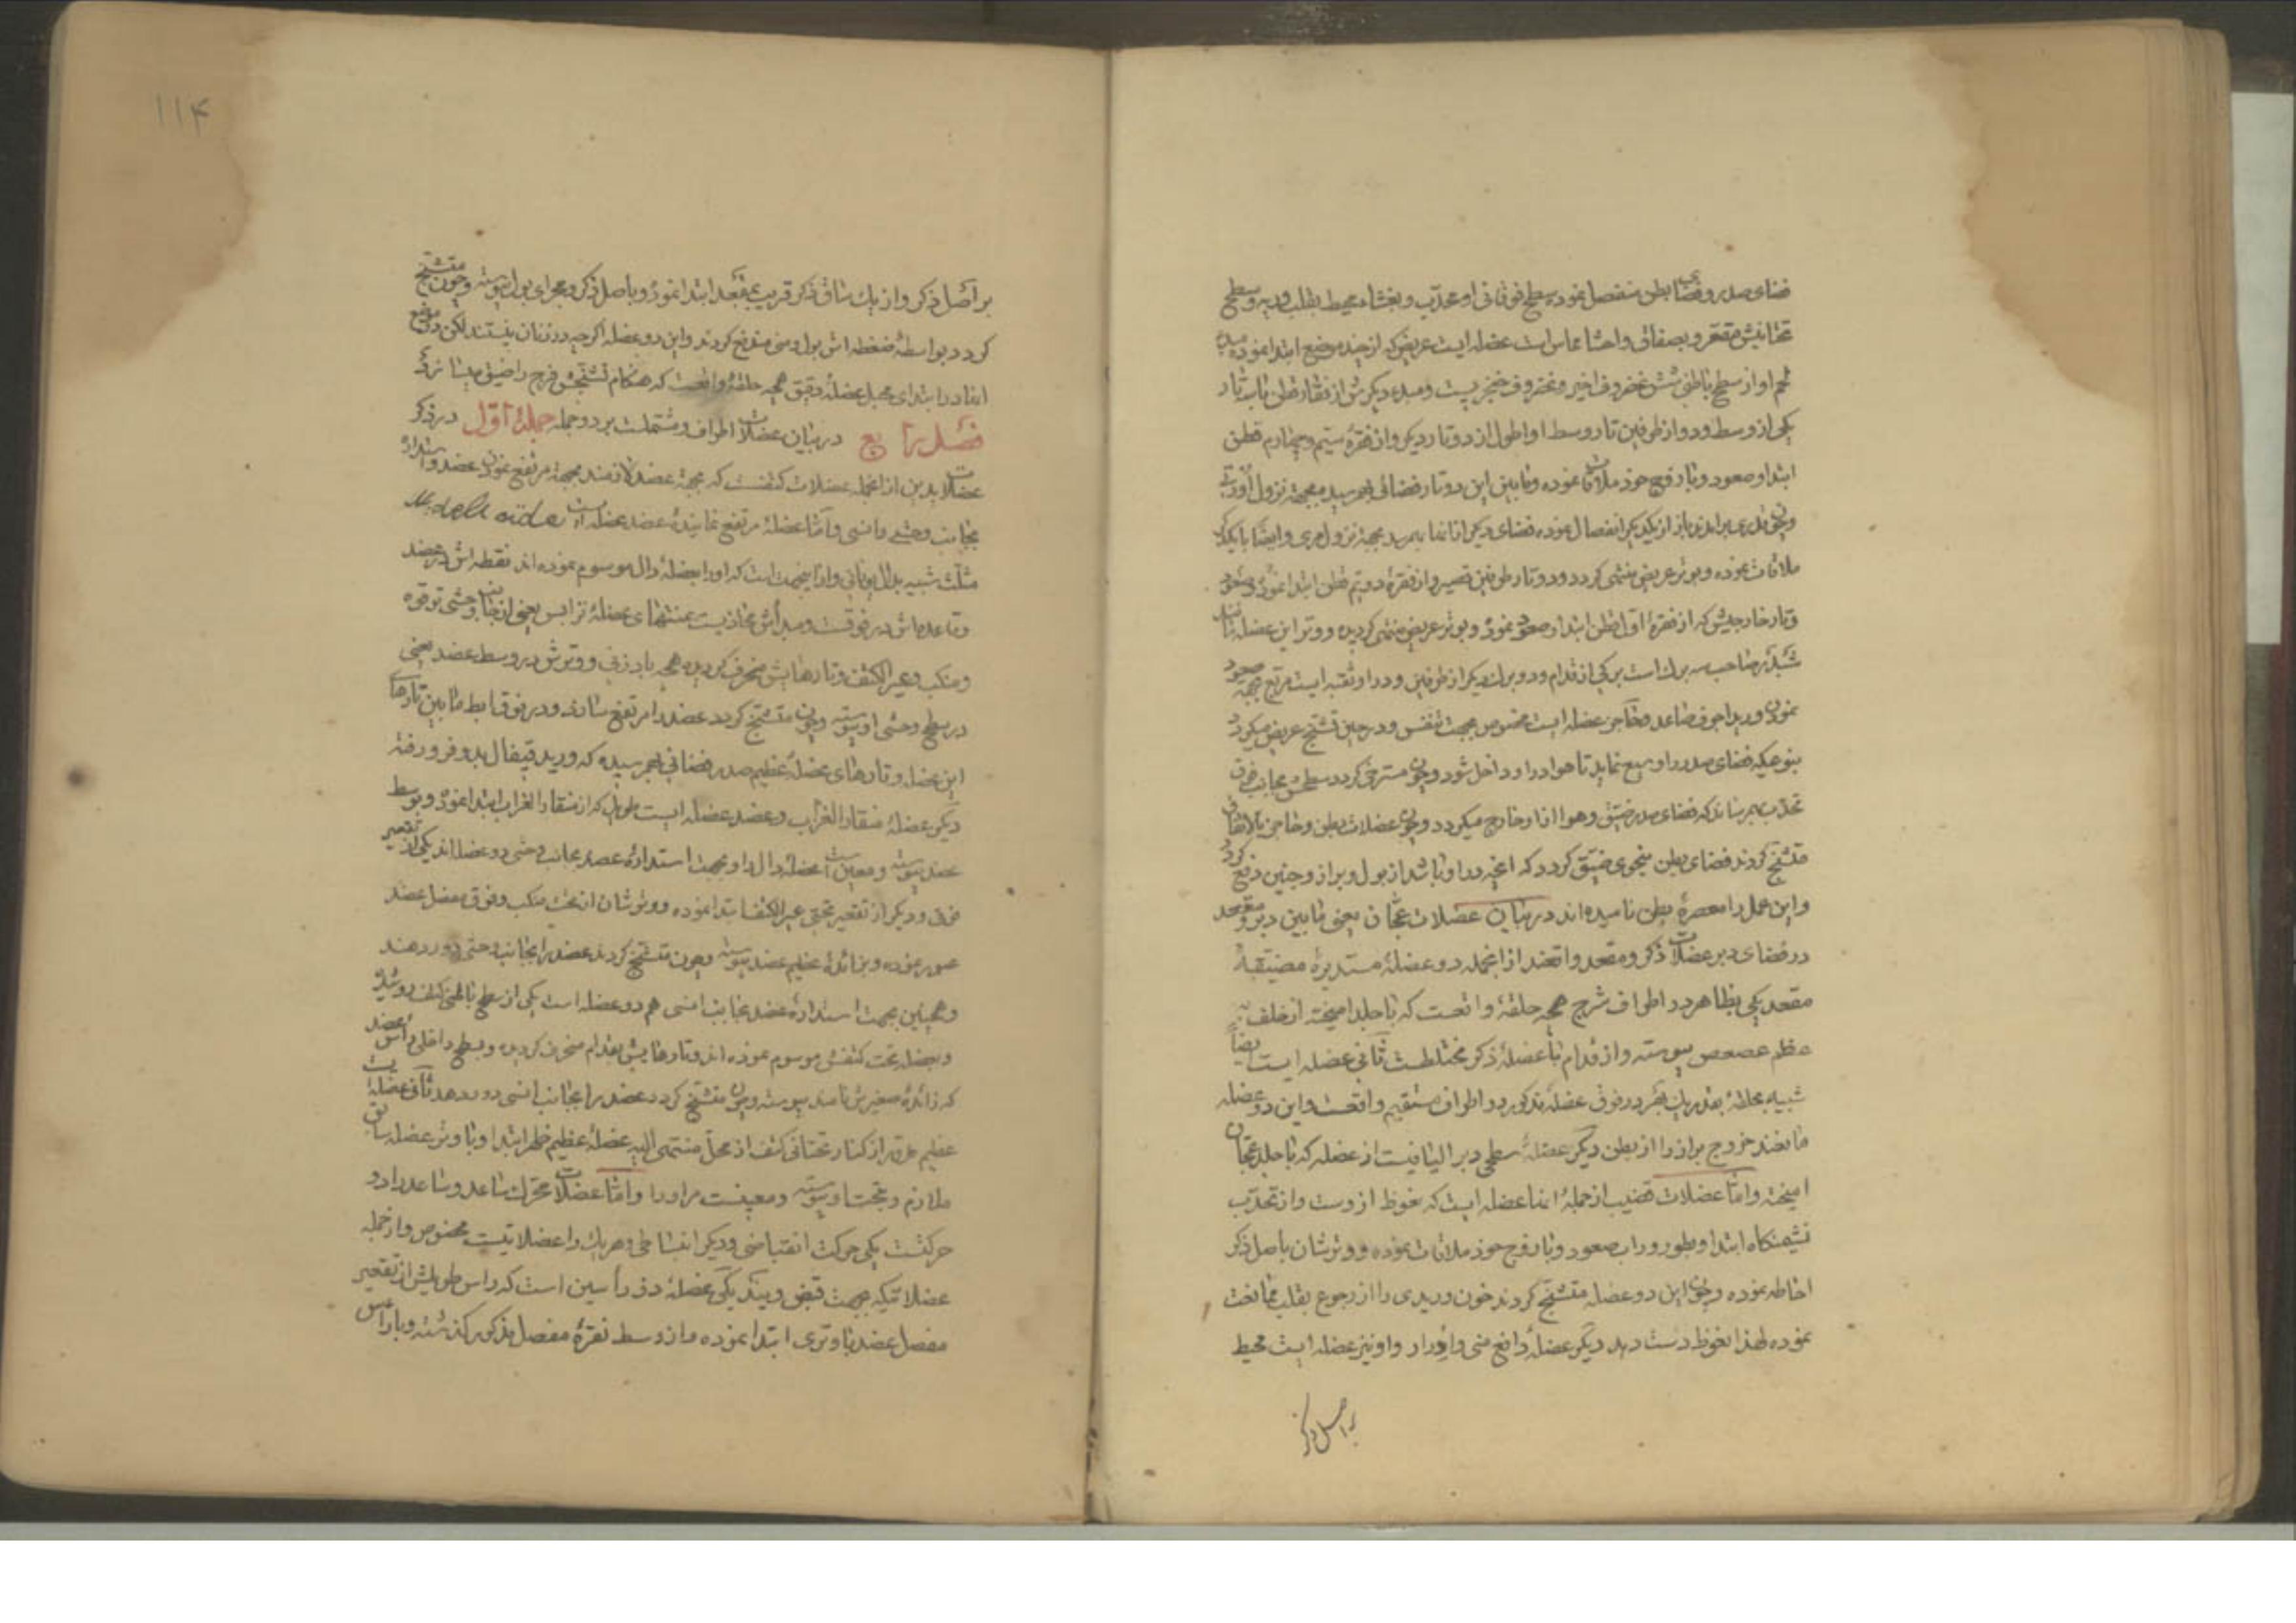 فضای صدر و فضای بطن منفصل نموده سطح فوقانی او محدّب و بغشاء محیط بقلب و ریه و سطح
تحتانیش مقعّر و بصفاق و احشا مماس است عضله ایست عریض که از چند موضع ابتدا نموده مبدء
لحم او از سطح باطنی شش غضروف اخیر و غضروف خنجریست و مبدء دیگرش از فقار قطن با سه تار
یکی از وسط و دو از طرفین تار وسط او اطول از دو تار دیگر و از فقرهٔ سیّم و چهارم قطن
ابتدا و صعود و با زوج خود ملاقات نموده و مابین این دو تار فضائی بهم رسیده بجهة نزول
و چون قدری برآیند باز از یکدیگر انفصال نموده فضای دیگر از آنها بهم رسد بجهة نزول مری و ایضا با یکدیگر
ملاقات نموده و بوتر عریض منتهی گردد و دو تار طرفین قصیر و از فقرهٔ دویّم قطن ابتدا نموده
و تار خارجیش که از فقرهٔ اول قطن ابتدا و صعود نموده و بوتر عریض منتهی گردیده و وتر این عضله
شبدر صاحب سه برگ است برگی از قدام و دو برگ دیگر از طرفین و در او ثقبه ایست مربع بجهة صعود
نمودن ورید اجوف صاعد و حاجز عضله ایست مخصوص بجهت تنفس و در حین تشنّج عریض میگردد
بنوعیکه فضای صدر را وسیع نماید تا هوا در او داخل شود و چون مسترخی گردد سطحش بجانب فوق
تحدّب بهم رساند که فضای صدر ضیّق و هوا از او خارج میگردد و چون عضلات بطن و حاجز بالاتفاق
متشنّج گردند فضای بطن بنحوی ضیّق گردد که آنچه در او باشد از بول و براز و جنین دفع گردد
و این عمل را معصرهٔ بطن نامیده اند در بیان عضلات عجّان یعنی مابین دبر و مقعد
در فضای دبر عضلات ذکر و مقعد واقعند از آنجمله دو عضلهٔ مستدیرهٔ مضیّقهٔ
مقعد یکی بظاهر در اطراف شرج همچه حلقهٔ واقعست که با جلد آمیخته از خلف به
عظم عصعص پیوسته و از قدام با عضلهٔ ذکر مختلطست ثانی عضله ایست ایضاً
شبیه بحلقهٔ بقدر یک بحر در فوق عضلهٔ مذکور در اطراف مستقیم واقعست و این دو عضله
مانعند خروج براز را از بطن دیگر عضلهٔ سطحی دبر الیافیست از عضله که با جلد عجّان
آمیخته و امّا عضلات قضیب از جملهٔ آنها عضله ایست که نعوظ از وست و از تحدّب
نشیمنگاه ابتدا و بطور وراب صعود و با زوج خود ملاقات نموده و وترشان باصل ذکر
احاطه نموده و چون این دو عضله متشنّج گردند خون وریدی را از رجوع بقلب ممانعت
نموده لهذا نعوظ دست دهد دیگر عضلهٔ دافع منی و ادرار و او نیز عضله ایست محیط
بر اصل ذکر
۱۱۴
بر اصل ذکر و از یک ساق ذکر قریب بمقعد ابتدا نموده و باصل ذکر و مجرای بول پیوسته و چون متشنّج
گردد بواسطهٔ ضغطه اش بول و منی مندفع گردند و این دو عضله اگر چه در زنان نیستند لکن در موضع
آنها در ابتدای مهبل عضلهٔ دقیق همچه حلقهٔ واقعست که هنگام تشنّجش فرج را ضیّق میسازد
فصل رابع در بیان عضلات اطراف و مشتملست بر دو جمله جملهٔ اول در ذکر
عضلات یدین از آنجمله عضلات کتفست که بجهة عضد لازمند بجهة مرتفع نمودن عضد و استدارهٔ
بجانب وحشی و انسی و امّا عضلهٔ مرتفع نمایندهٔ عضد عضله ایست M. deltoide
مثلّث شبیه بدال یونانی و از اینجهت است که او را بعضلهٔ دال موسوم نموده اند نقطه اش در عضد
و قاعده اش در فوقست و مبدأش محاذیست بمنتهای عضلهٔ ترابس یعنی از جانب وحشی ترقوه
و منکب و عیر الکتف و تارهایش منحرف گردیده همچه بادزنی و وترش در وسط عضد یعنی
در سطح وحشی او پیوسته و چون متشنّج گردد عضد را مرتفع سازد و در فوق ابط مابین تارهای
این عضله و تارهای عضلهٔ عظیم صدر فضائی بهم رسیده که ورید قیفال بدو فرو رفته
دیگر عضلهٔ منقار الغراب و عضد عضله ایست طویل که از منقار الغراب ابتدا نموده و بوسط
عضد پیوسته و معینست عضلهٔ دال را و بجهت استدارهٔ عضد بجانب وحشی دو عضله اند یکی از تقعیر
فوقی و دیگر از تقعیر تحتی عیر الکتف ابتدا نموده و وترشان از تحت منکب و فوق مفصل عضد
عبور نموده و بزائدهٔ عظیم عضد پیوسته و چون متشنّج گردند عضد را بجانب وحشی دور دهند
و همچنین بجهت استدارهٔ عضد بجانب انسی هم دو عضله است یکی از سطح باطنی کتف روئیده
و بعضله تحت کتفش موسوم نموده اند و تارهایش بقدام منحرف گردیده و بسطح داخلی رأس عضد
که زائدهٔ صغیرش نامند پیوسته و چون متشنّج گردد عضد را بجانب انسی دور دهد ثانی عضله ایست
عظیم مدوّر از کنار تحتانی کتف از محلّ منتهی الیه عضلهٔ عظیم ظهر ابتدا و با وتر عضله سابق
ملازم و بتحت او پیوسته و معینست مر او را و امّا عضلات محرّک ساعد و ساعد را دو
حرکتست یکی حرکت انقباضی و دیگر انبساطی و هر یک را عضلاتیست مخصوص و از جمله
عضلاتیکه بجهت قبض ویند یکی عضلهٔ ذو رأسین است که رأس طویلش از تقعیر
مفصل عضد با وتری ابتدا نموده و از وسط نقرهٔ مفصل مذکور گذشته و با رأس